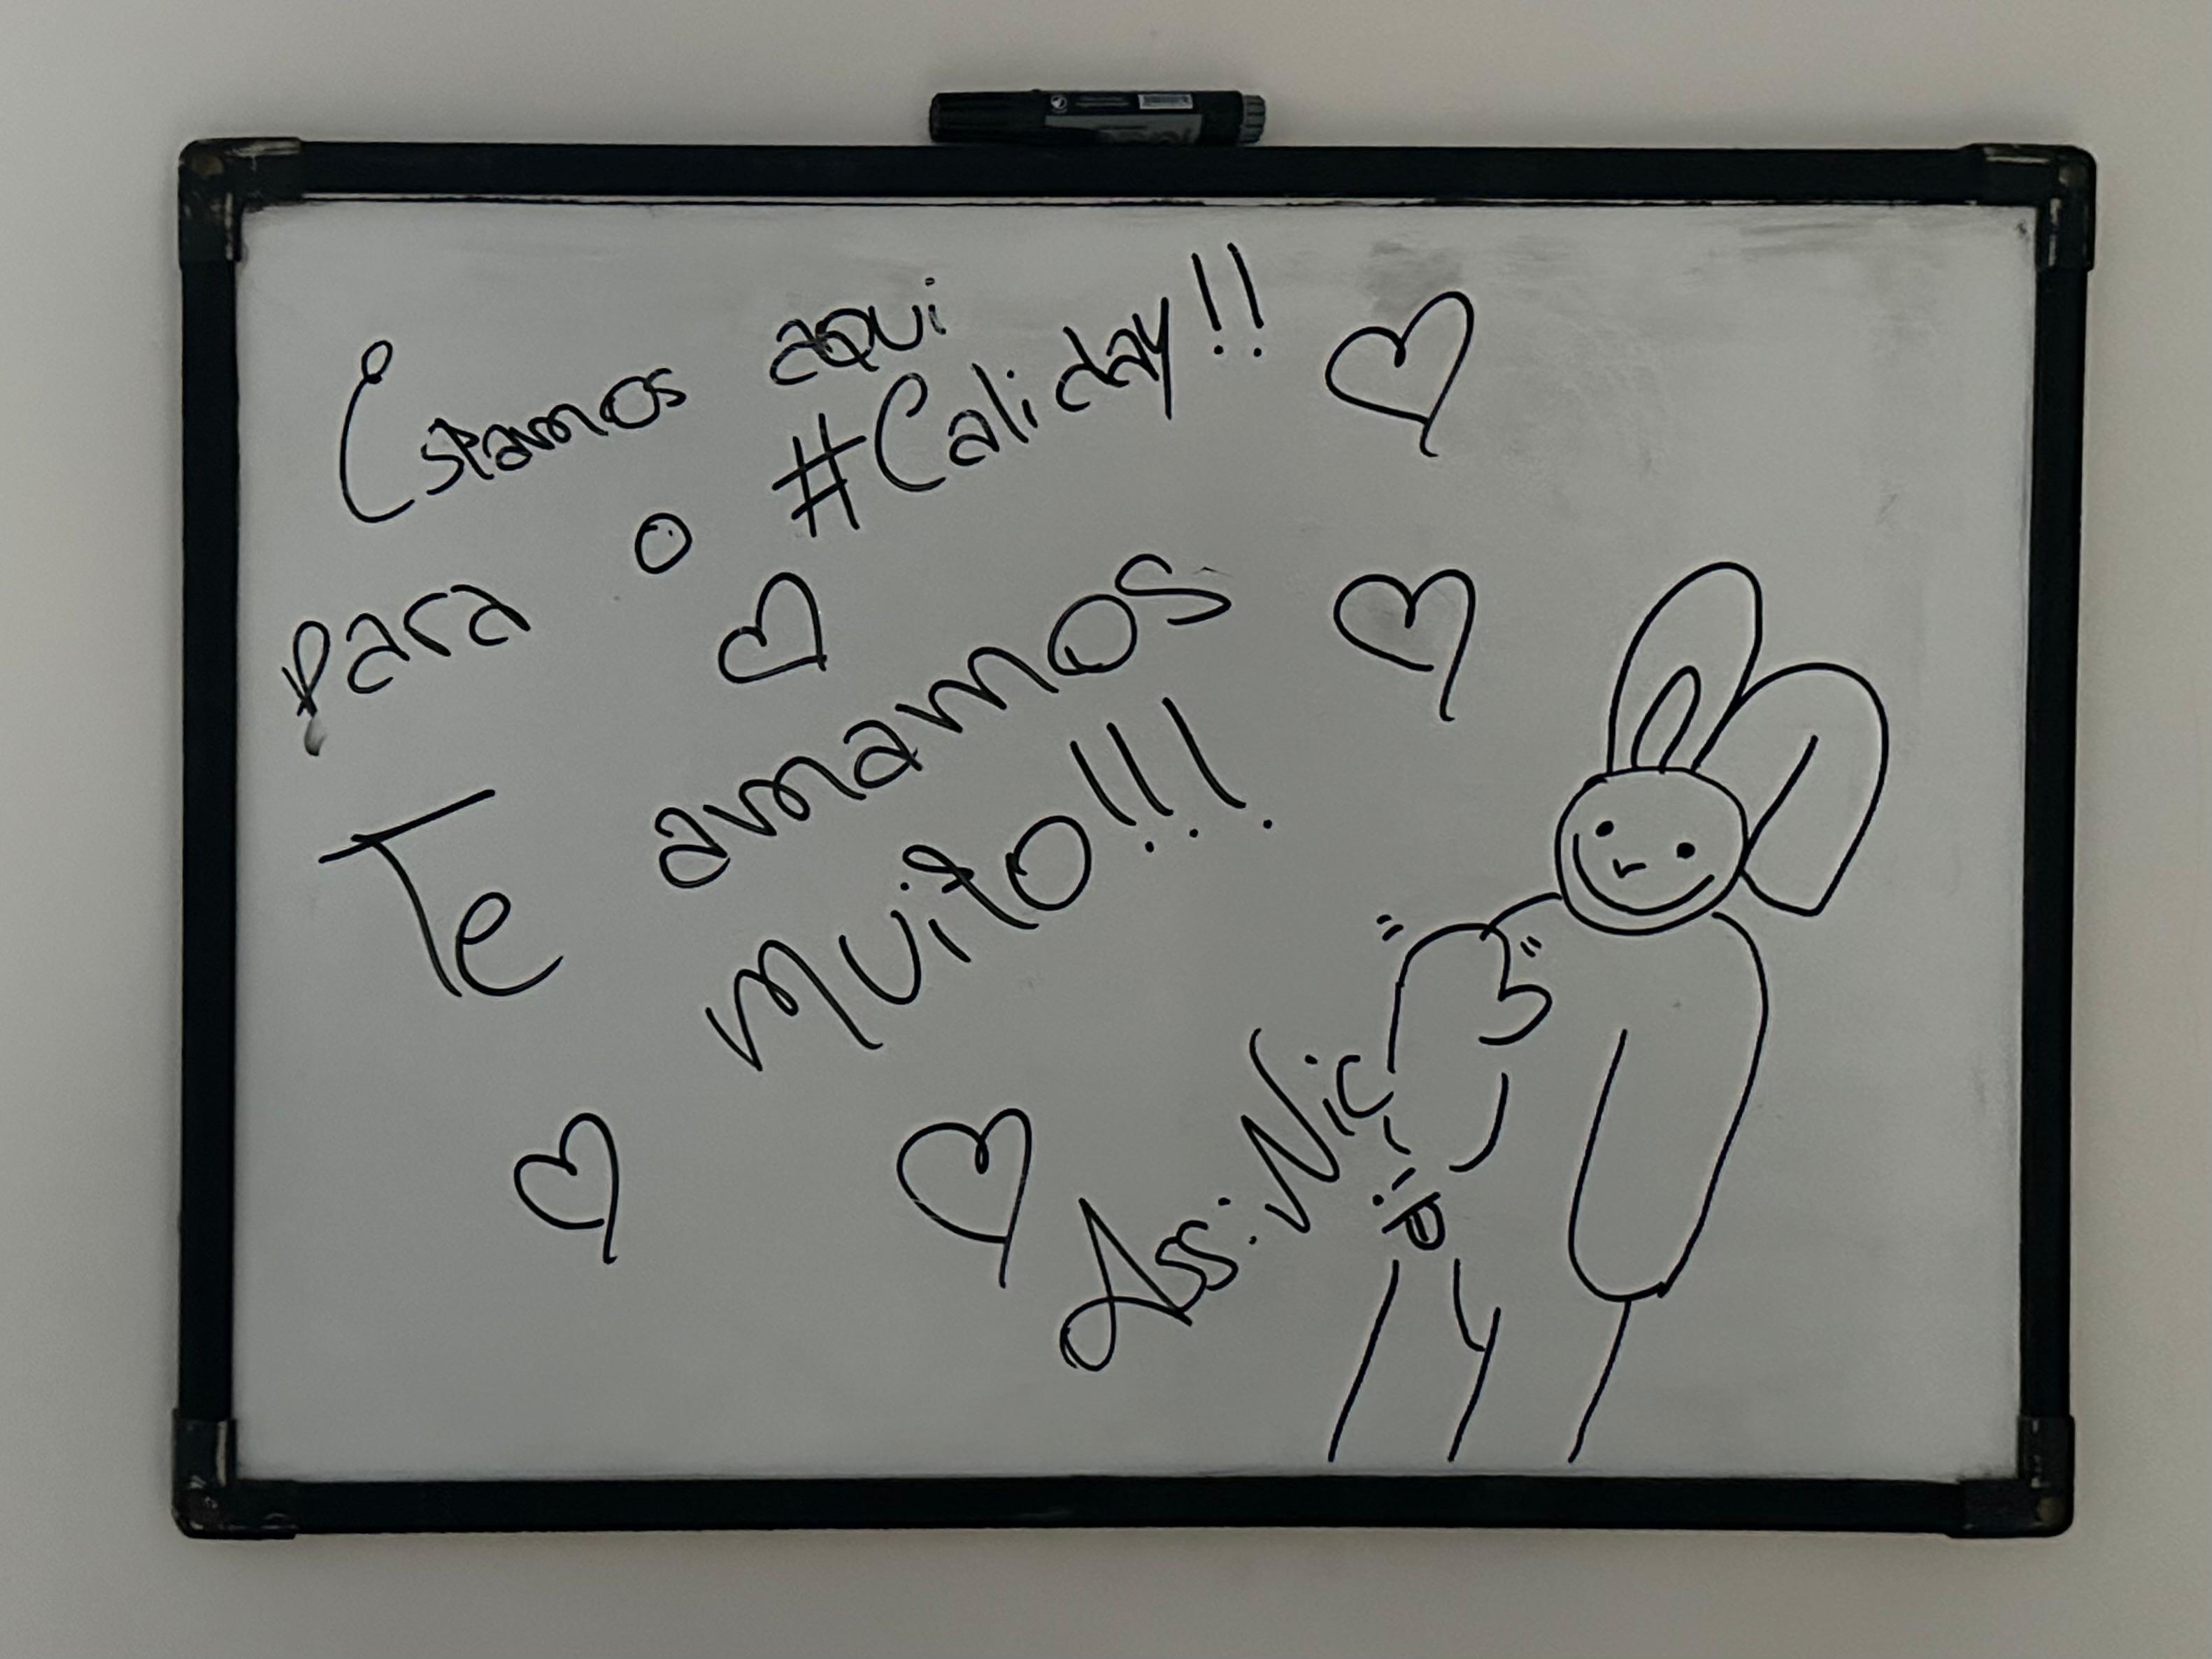 Estamos aqui
para o #Caliday!!
Te amamos
muito!!!
Ass: Nic